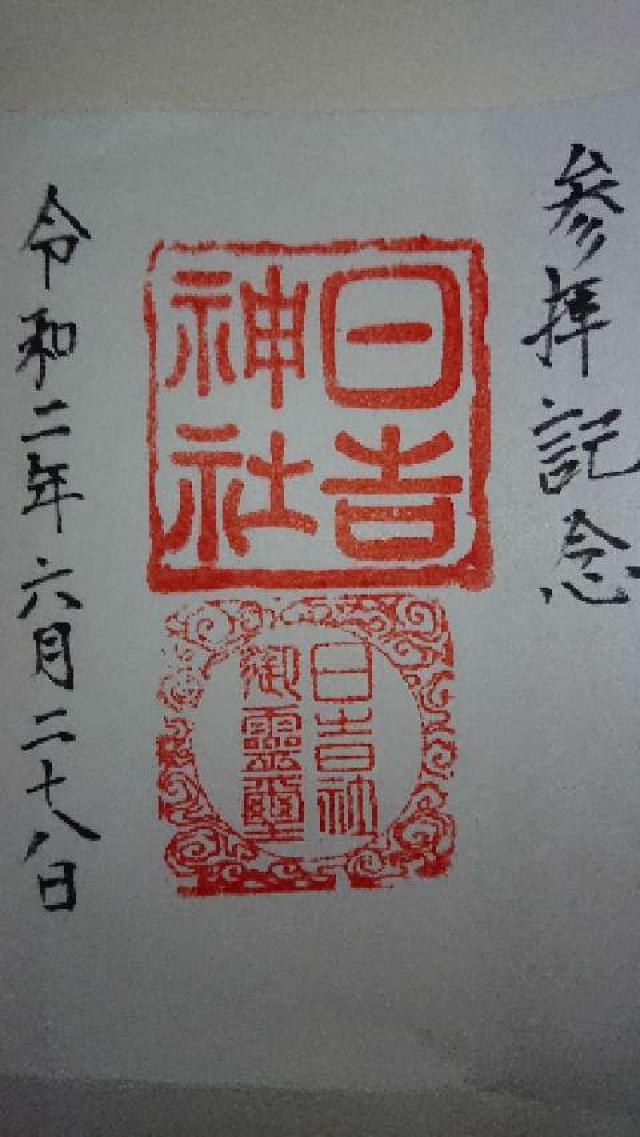 参拝記念
日吉
神社
日吉社
御霊璽
令和二年六月二十八日